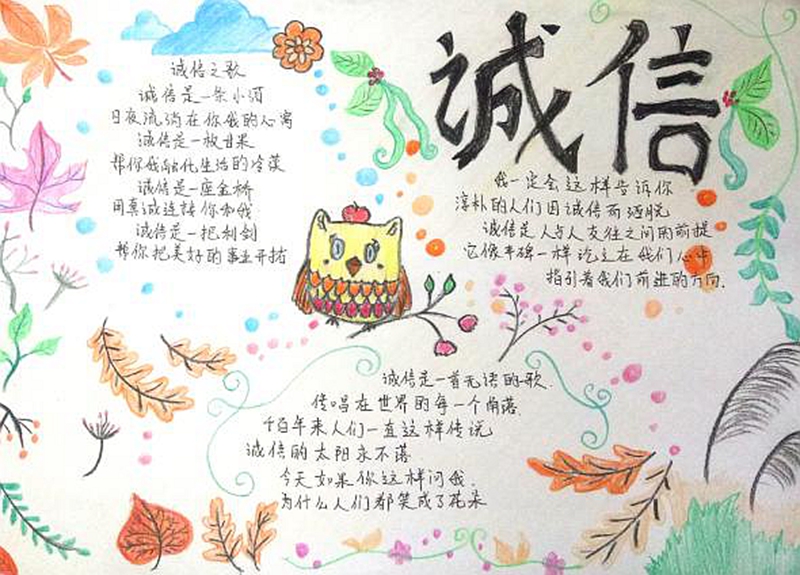 诚信
诚信之歌
诚信是一条小河
日夜流淌在你我的心窝
诚信是一枚甘果
帮你我融化生活的冷漠
诚信是一座金桥
用真诚连接你和我
诚信是一把利剑
帮你把美好的事业开拓
我一定会这样告诉你
淳朴的人们因诚信而洒脱
诚信是人与人交往之间的前提
它像丰碑一样屹立在我们心中
指引着我们前进的方向.
诚信是一首无语的歌.
传唱在世界的每一个角落.
千百年来人们一直这样传说
诚信的太阳永不落
今天如果你这样问我.
为什么人们都笑成了花朵